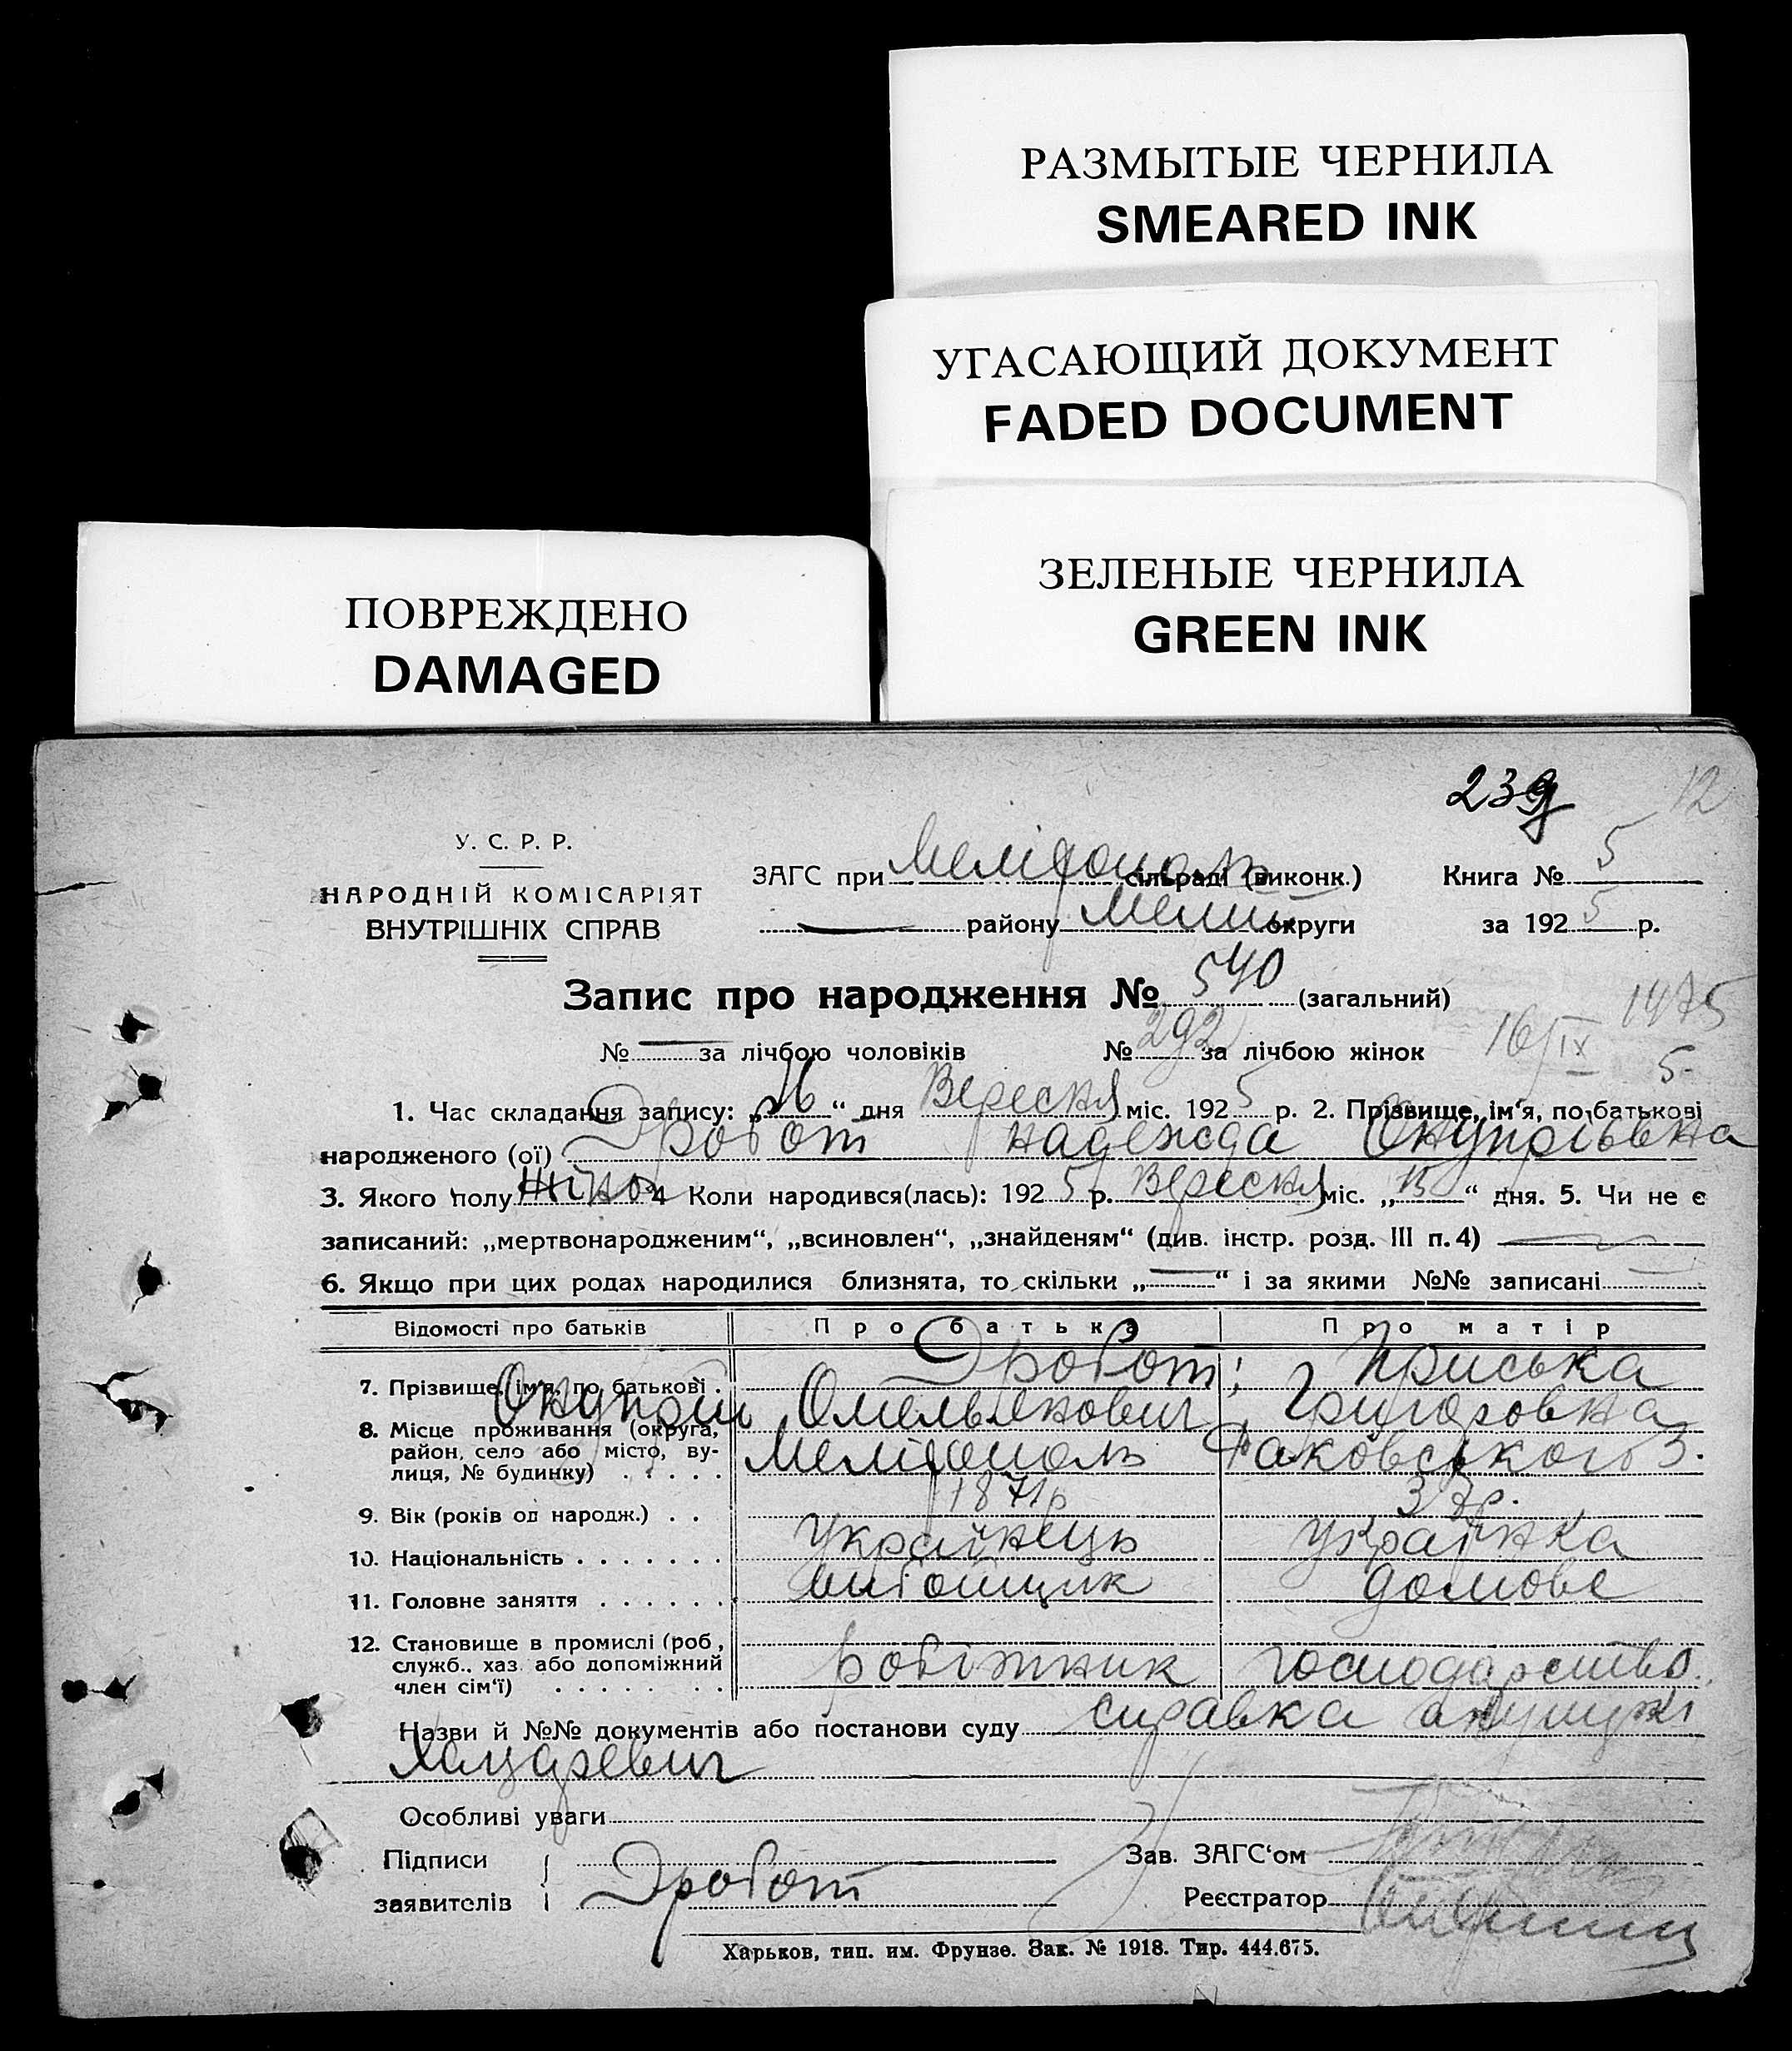 РАЗМЫТЫЕ ЧЕРНИЛА
SMEARED INK
УГАСАЮЩИЙ ДОКУМЕНТ
FADED DOCUMENT
ЗЕЛЕНЫЕ ЧЕРНИЛА
GREEN INK
ПОВРЕЖДЕНО
DAMAGED
239 12
У. С. Р. Р.
НАРОДНІЙ КОМІСАРІЯТ
ВНУТРІШНІХ СПРАВ
ЗАГС при Меліtополь сільраді (виконк.) Книга № 5
району Меліт округи за 1925 р.
Запис про народження № 540 (загальний)
1475
№ за лічбою чоловіків № 292 за лічбою жінок 16/IX 5
1. Час складання запису: „16“ дня Вересня міс. 1925 р. 2. Прізвище, ім'я, по батькові
народженого (ої) Дробот Надежда Онупріївна
3. Якого полу жіно 4 Коли народився(лась): 1925 р. Вересня міс. „15“ дня. 5. Чи не є
записаний: „мертвонародженим“, „всиновлен“, „знайденям“ (див. інстр. розд. III п. 4)
6. Якщо при цих родах народилися близнята, то скільки „ “ і за якими №№ записані
Відомості про батьків Про батька Про матір
7. Прізвище, ім'я, по батькові Дробот Приська
Онупрій Омельянович Григоровна
8. Місце проживання (округа, район, село або місто, вулиця, № будинку) Меліtополь Раковського 3.
9. Вік (років од народж.) 1871р 37р.
10. Національність українець українка
11. Головне заняття домове
12. Становище в промислі (роб, служб., хаз. або допоміжний член сім'ї) робітник господарство.
Назви й №№ документів або постанови суду справка акушерки
Особливі уваги
Підписи
заявителів Дробот
Зав. ЗАГС'ом
Реєстратор
Харьков, тип. им. Фрунзе. Зак. № 1918. Тир. 444.675.